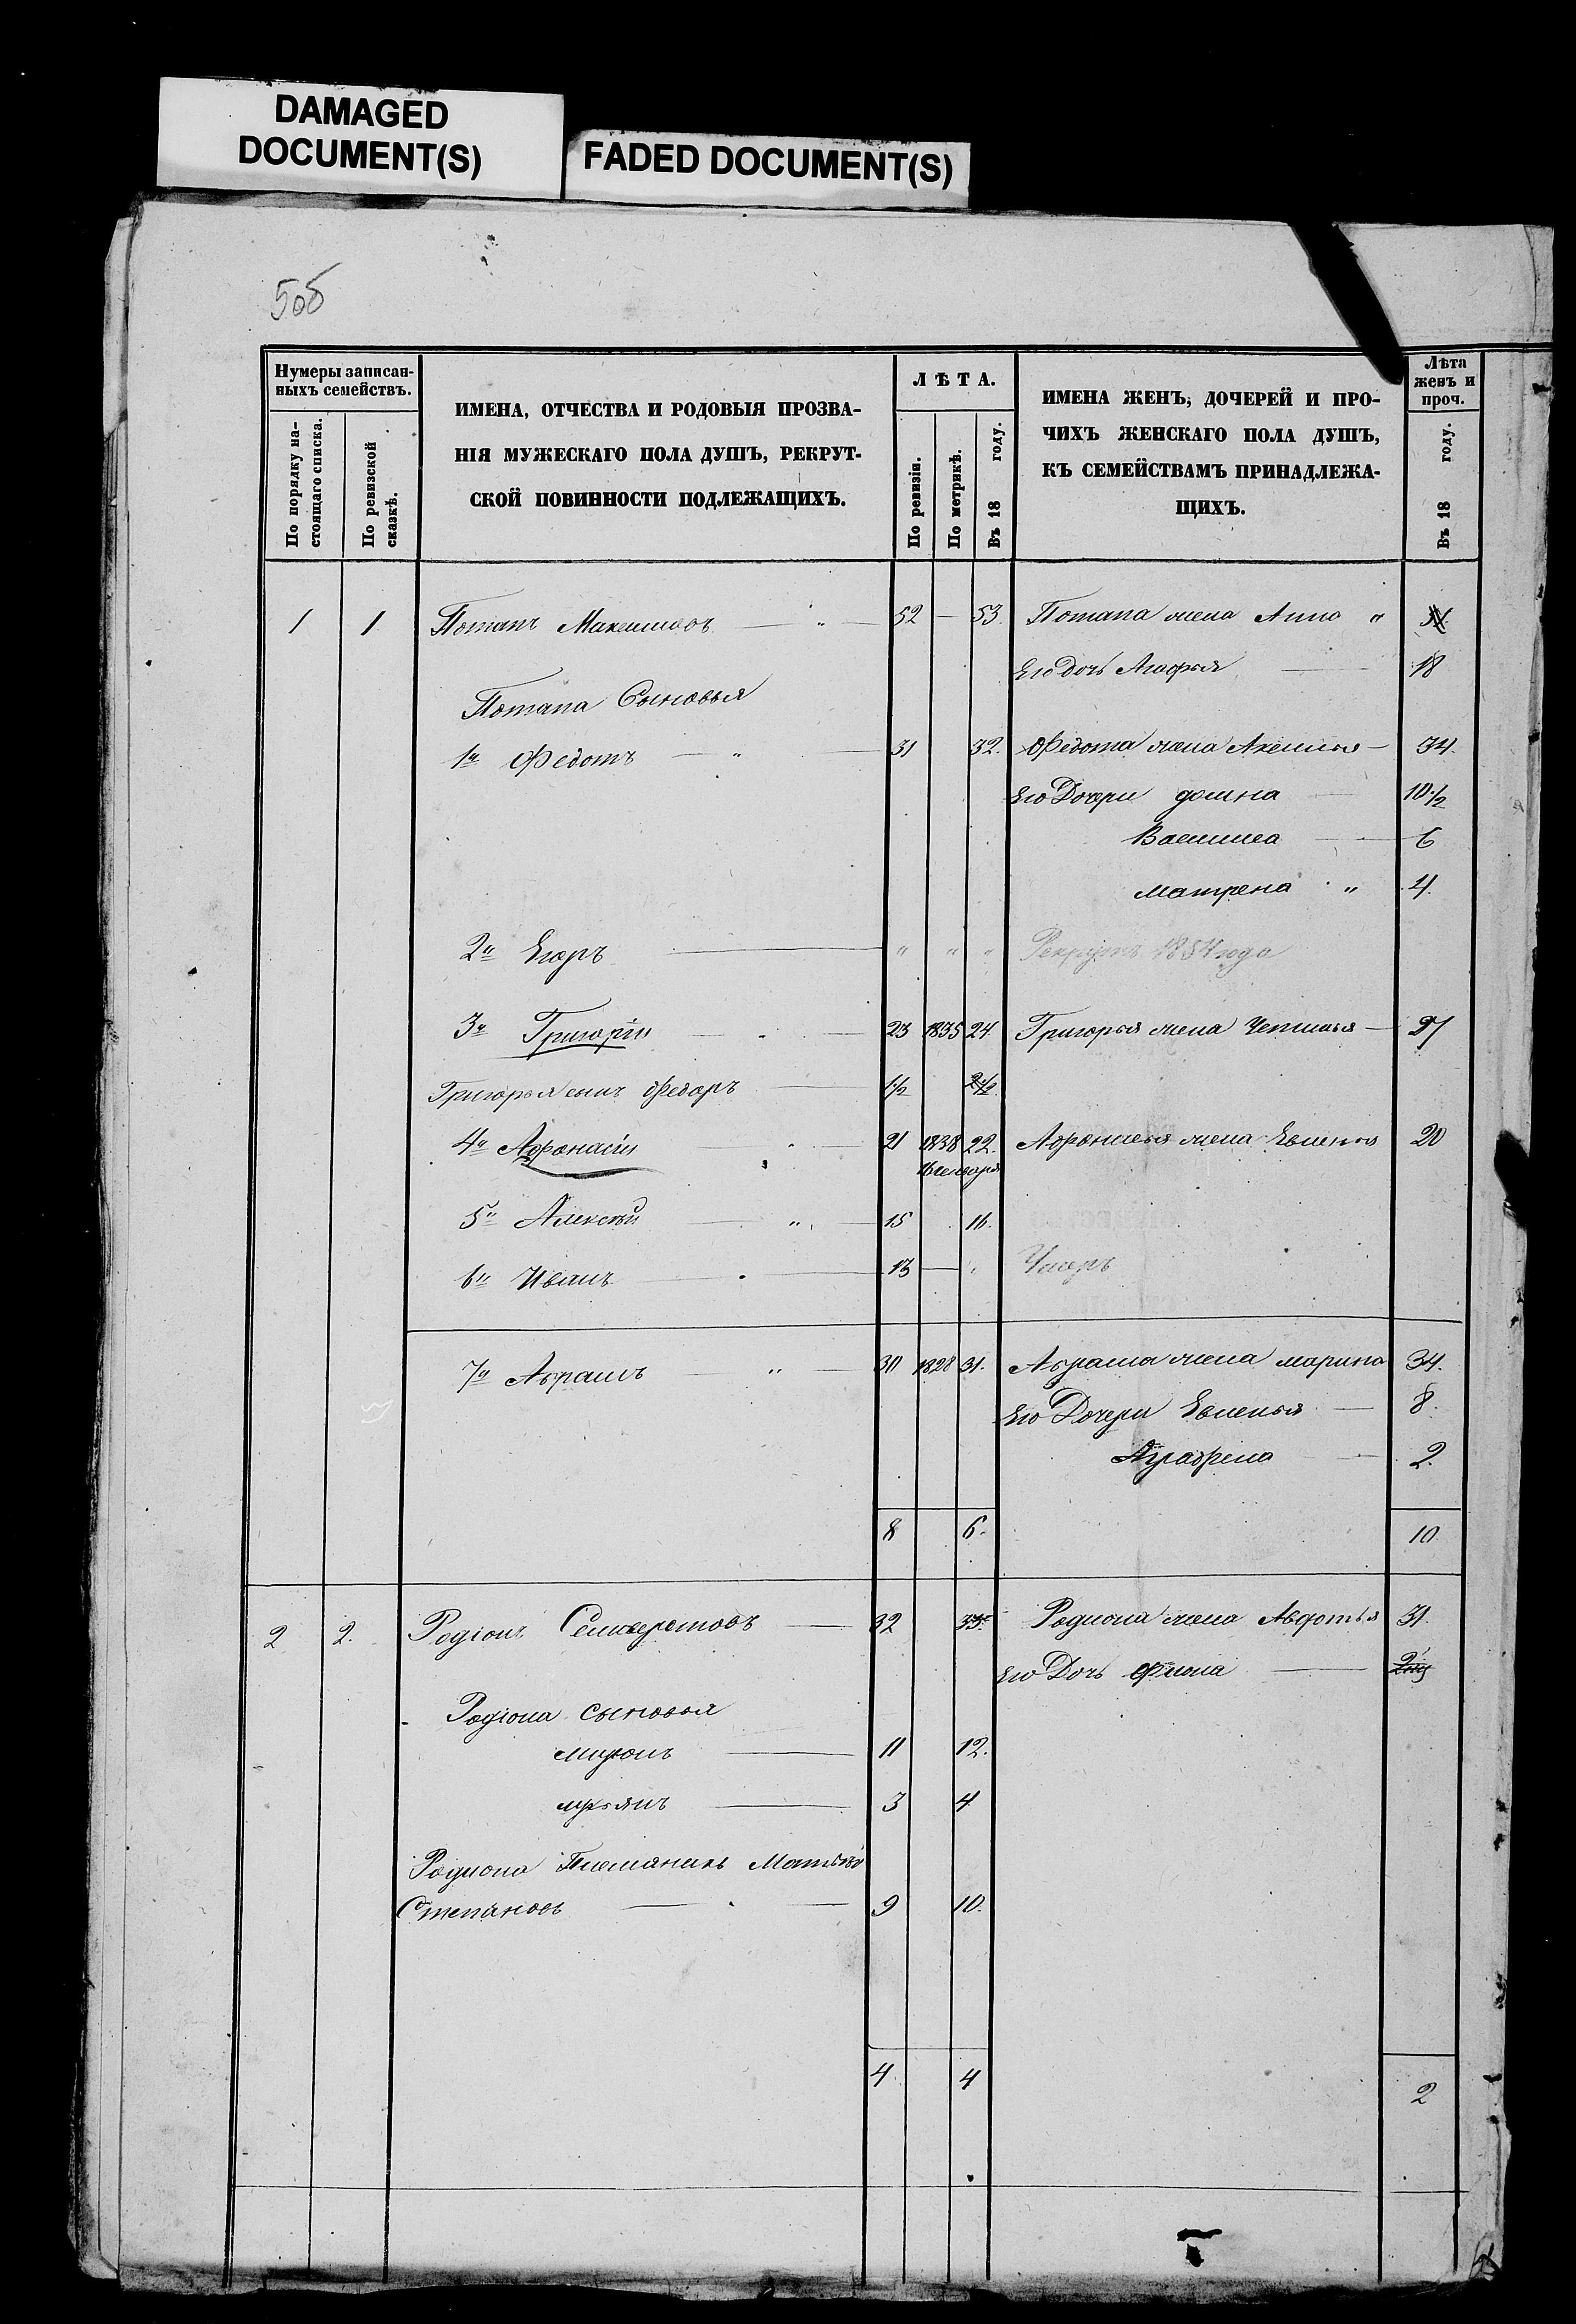 DAMAGED
DOCUMENT(S)
FADED DOCUMENT(S)
5об
Нумеры записан-
ныхъ семействъ.
По порядку на-
стоящаго списка.
По ревизской
сказкѣ.
ИМЕНА, ОТЧЕСТВА И РОДОВЫЯ ПРОЗВА-
НІЯ МУЖЕСКАГО ПОЛА ДУШЪ, РЕКРУТ-
СКОЙ ПОВИННОСТИ ПОДЛЕЖАЩИХЪ.
ЛѢТА.
По ревизіи.
По метрикѣ.
Въ 18 году.
ИМЕНА ЖЕНЪ, ДОЧЕРЕЙ И ПРО-
ЧИХЪ ЖЕНСКАГО ПОЛА ДУШЪ,
КЪ СЕМЕЙСТВАМЪ ПРИНАДЛЕЖА-
ЩИХЪ.
Лѣта
женъ и
проч.
Въ 18 году.
1 1 Потапъ Максимовъ — " — 52 — 53 Потапа жена Анна "
Его дочь Агафья — 18
Потапа Сыновья
1й Федотъ — " — 31 32. Федота жена Аксинья — 34.
Его Дочери домна — 10 1/2
Василиса — 6
Матрена " 4.
2й Егоръ — " " " Рекрутъ 1854 года
3й Григорій — 23 1835 24 Григорья жена — 27
Григорья сынъ Федоръ — 1 1/2 2 1/2
4й Афонасій — 21 1838 22. Афонасья жена Евгенья 20
Генваря
5й Алексѣй — " — 15 16.
6й Иванъ — 13 — " Умеръ
7й Абрамъ — " — 30 1828 31. Абрама жена марина 34.
Его Дочери Евгенья — 8.
Аграфена — 2.
8 6. 10
2 2. Родіонъ — 32 33. Родиона жена Авдотья 31.
Его Дочь —
Родіона сыновья
миронъ — 11 12.
лукьянъ — 3 4
Родиона Племяникъ Матвѣй
Степановъ — 9 10.
4 4 2